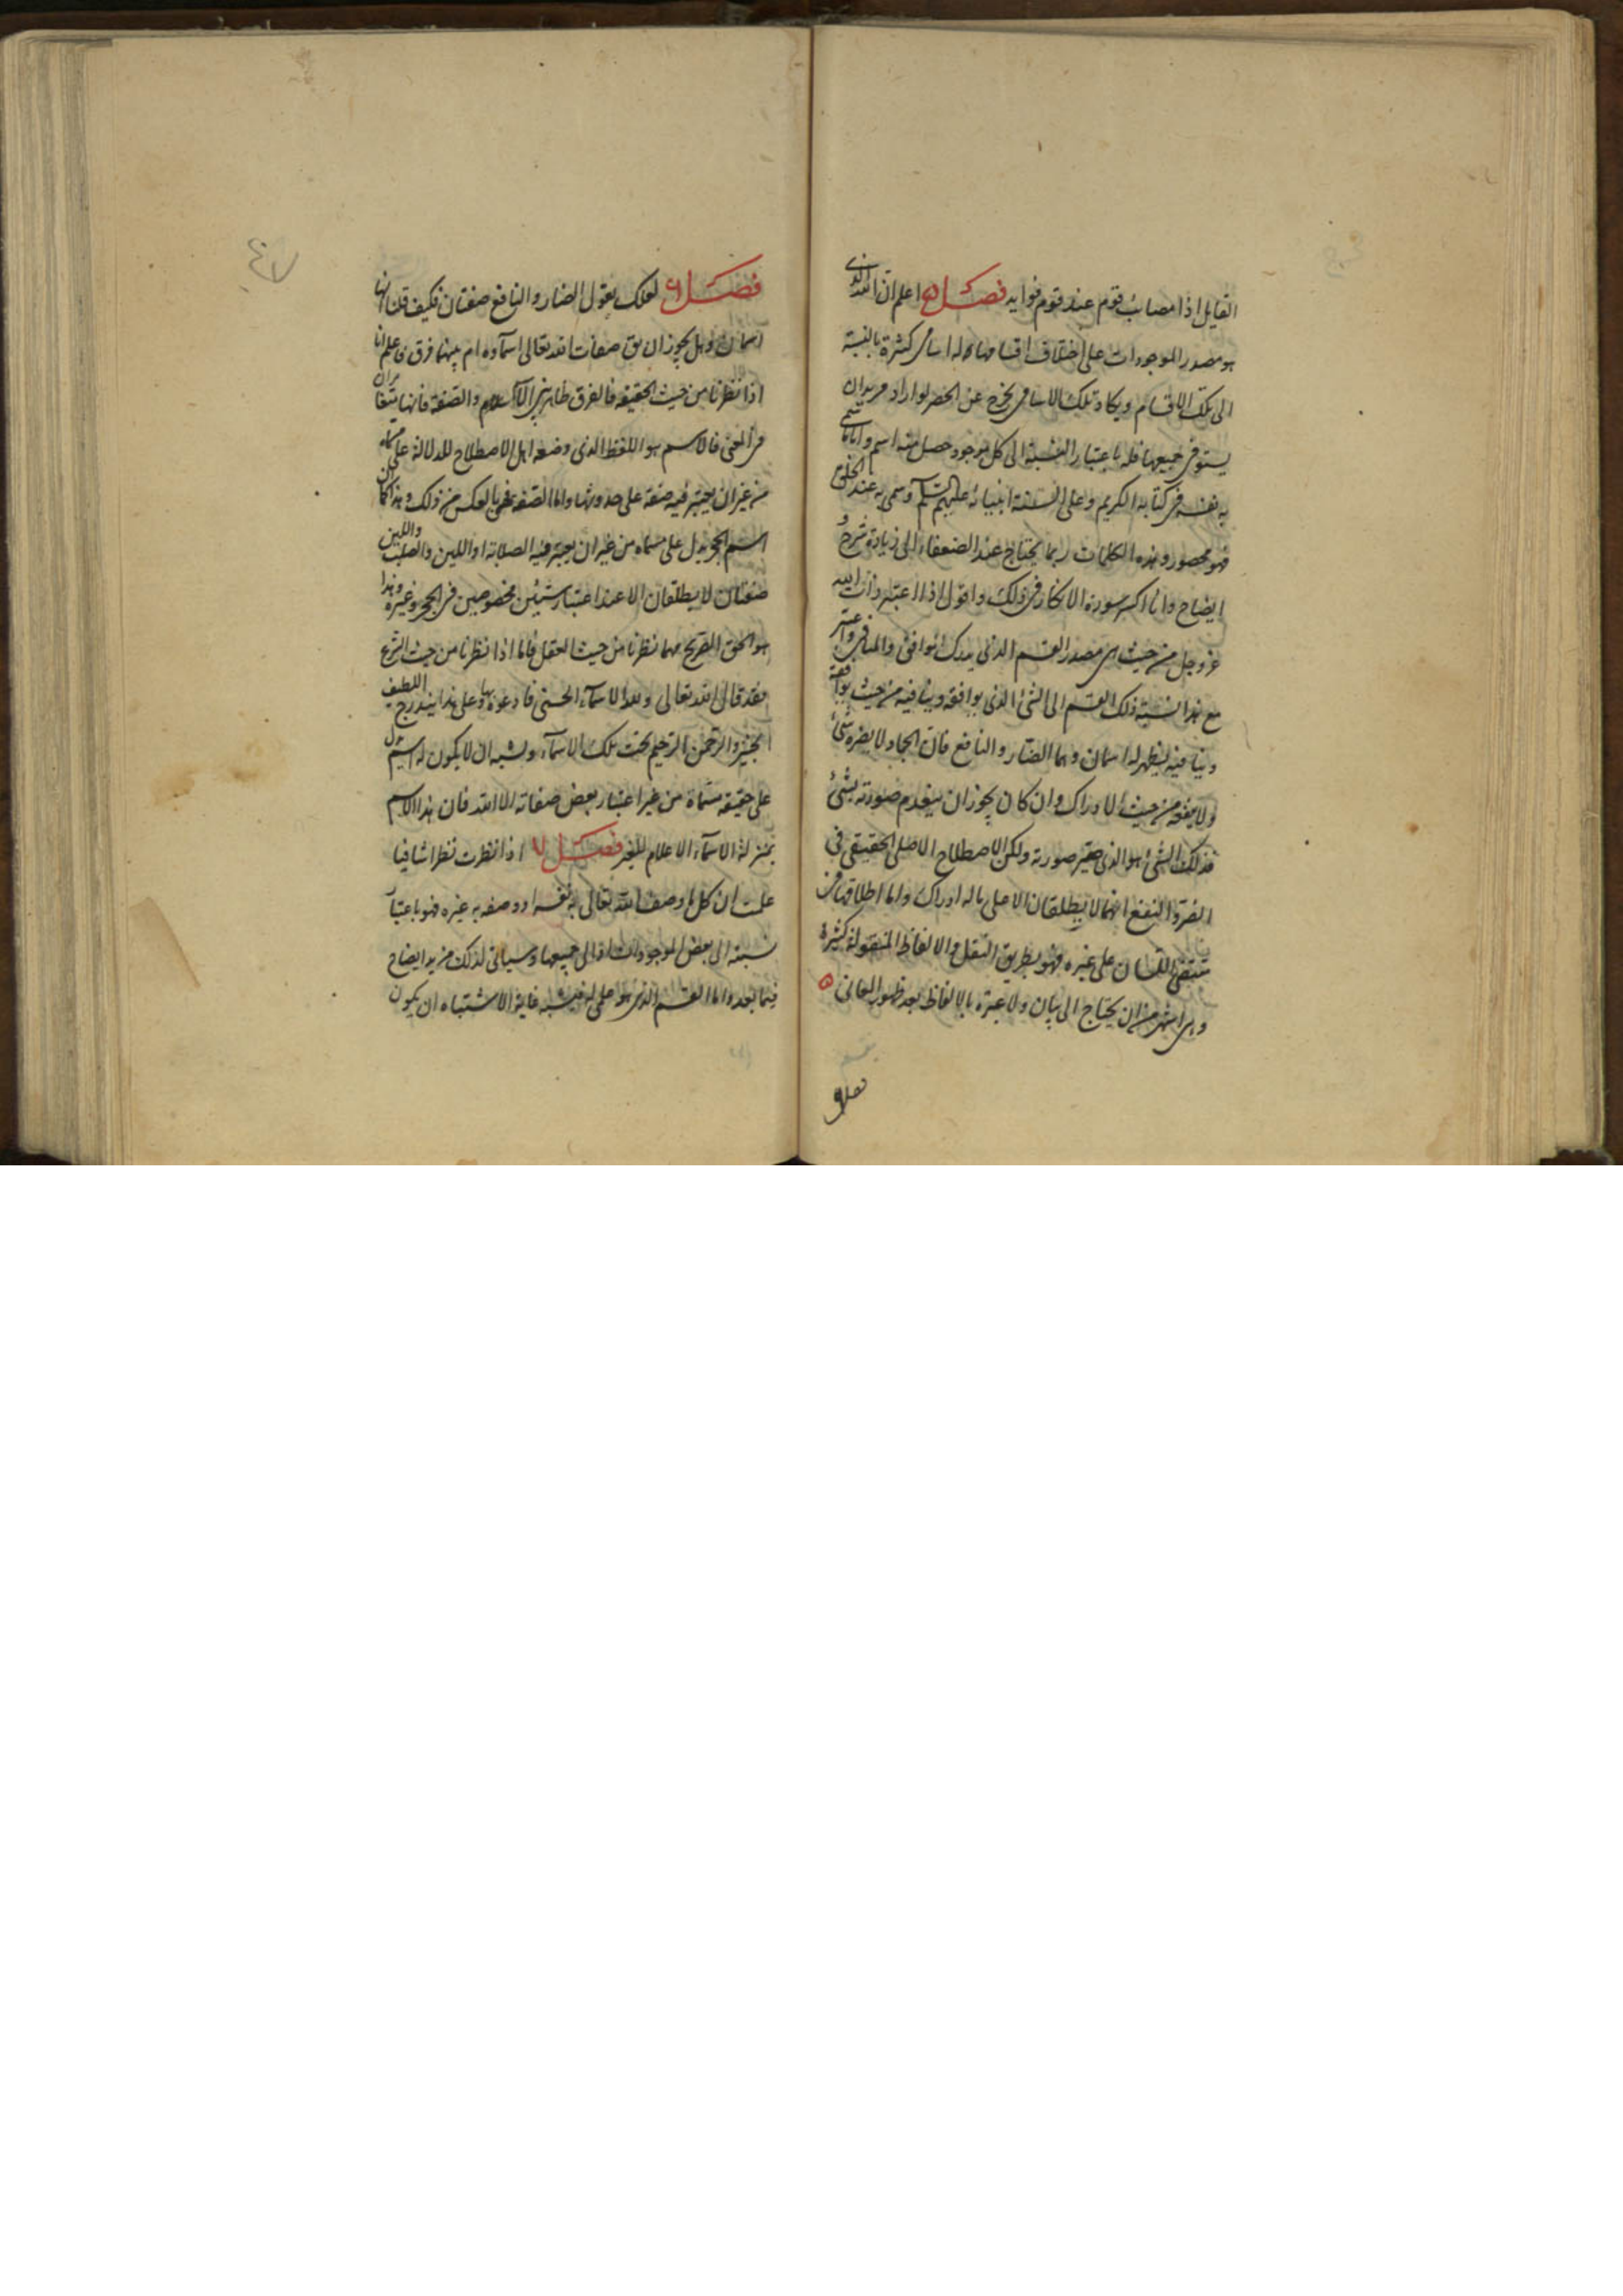 القايل اذا مصائب قوم عند قوم فوايد فصل ۵ اعلم ان الله الذى
هو مصدر الموجودات على اختلاف اقسامها له اسامى كثيرة بالنسبة
الى تلك الاقسام ويكاد تلك الاسامى يخرج عن الحصر لو اراد مريد ان
يستوفى جميعها فله باعتبار النسبة الى كل موجود حصل منه اسم واما ما تسمى
به نفسه فى كتابه الكريم وعلى السنة انبيائه عليهم السلم وسمى به عند الخلق
فهو محصور وهذه الكلمات ربما يحتاج عند الضعفاء الى زيادة شرح و
ايضاح وانا اكسر سورة الانكار فى ذلك واقول اذا اعتبر ذات الله
عز وجل من حيث هى مصدر القسم الذى يدرك الموافق والمنافى واعتبر
مع هذا نسبة ذلك القسم الى الشئ الذى يوافقه وينافيه من حيث يوافقه
وينافيه ليظهر له اسمان وهما الضار والنافع فان الجماد لا يضره شئ
ولا ينفعه من حيث الادراك وان كان يجوز ان ينعدم صورته بشئ
فذلك الشئ هو الذى صورته ولكن الاصطلاح الاصلى الحقيقى فى
الضر والنفع انهما لا يطلقان الا على ما له ادراك واما اطلاقهما فى
اللسان على غيره فهو بطريق النقل والالفاظ المنقولة كثيرة
وهى اشهر من ان يحتاج الى بيان ولا عبرة بالالفاظ بعد ظهور المعانى ۵
فصل ۶ لعلك تقول الضار والنافع صفتان فكيف قلت انهما
اسمان وهل يجوز ان يق صفات الله تعالى اسماؤه ام بينهما فرق فاعلم انا
اذا نظرنا من حيث الحقيقة فالفرق ظاهر بين الاسم والصفة فانهما متغايران
فى المعنى فالاسم هو اللفظ الذى وضعه اهل الاصطلاح للدلالة على مسماه
من غير ان يعتبر فيه صفة على حدوثها واما الصفة فهى بالعكس من ذلك وهذا كما ان
اسم الحجر يدل على مسماه من غير ان يعتبر فيه الصلابة او اللين والصلب واللين
صفتان لا يطلقان الا عند اعتبار شيئين مخصوصين فى الحجر وغيره وهذا
هو الحق الصريح مهما نظرنا من حيث العقل فاما اذا نظرنا من حيث الشرع
فقد قال الله تعالى ولله الاسماء الحسنى فادعوه بها وعلى هذا يندرج اللطيف
الخبير والرحمن الرحيم تحت تلك الاسماء ويشبه ان لا يكون له اسم يدل
على حقيقة مسماة من غير اعتبار بعض صفاته الا الله فان هذا الاسم
بمنزلة الاسماء الاعلام للغير فصل ۷ اذا نظرت نظرا شافيا
علمت ان كل ما وصف الله تعالى به نفسه او وصفه به غيره فهو باعتبار
نسبته الى بعض الموجودات او الى جميعها وسياتى لذلك مزيد ايضاح
فيما بعد واما القسم الذى هو له فيشبه غاية الاشتباه ان يكون